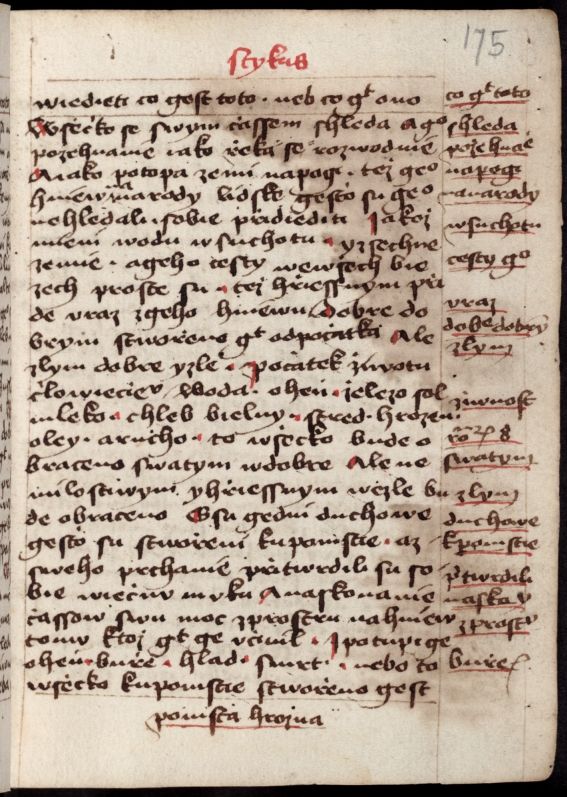 175
scykus
wiedieti co gest toto · neb co gt ono
Wssecko se swym cassem shleda A go
pozehnanie iako rzeka se rozwodnie
A iako potopa zemi napogi · tez geo
hniew na narody lidske gesto su geo
nehledalu sobie przidiediti Jakoz
mieni wodu w suchotu · yzsechne
zemie · a geho cesty wewssech bie
zech proste su · tez hrziessnym przi
de vraz z geho hniewu dobre do
brym stworzeno gt od poczatka Ale
zlym dobre y zle · poczatek ziwotu
czlowieczier woda · ohen · zelezo sol
mleko · chleb bielny · stred · hrozen
oley · a rucho · to wssecko bude o
braceno swatym w dobre Ale ne
milostiwym y hrziessnym w zle bu
de obraceno Gsu gedni duchowe
gesto su stworzeni ku pomstie · az
sweho prchanie przitwrdili su so
bie wieczier muku A na skonanie
czassow swu moc zprostru na hniew
tomu ktoz gt ge vczinil · J potupi ge
ohen · burze · hlad · smrt · nebo to
wssecko ku pomstie stworzeno gest
pomsta hrozna
co gt toto
shleda
pozehnanie
napogi
na narody
w suchotu
cesty go
vraz
dobre dobrym
zlym
ziwnost
swatym
zlym
duchowe
k pomstie
przitwrdili
na skonay
zprosty
burze